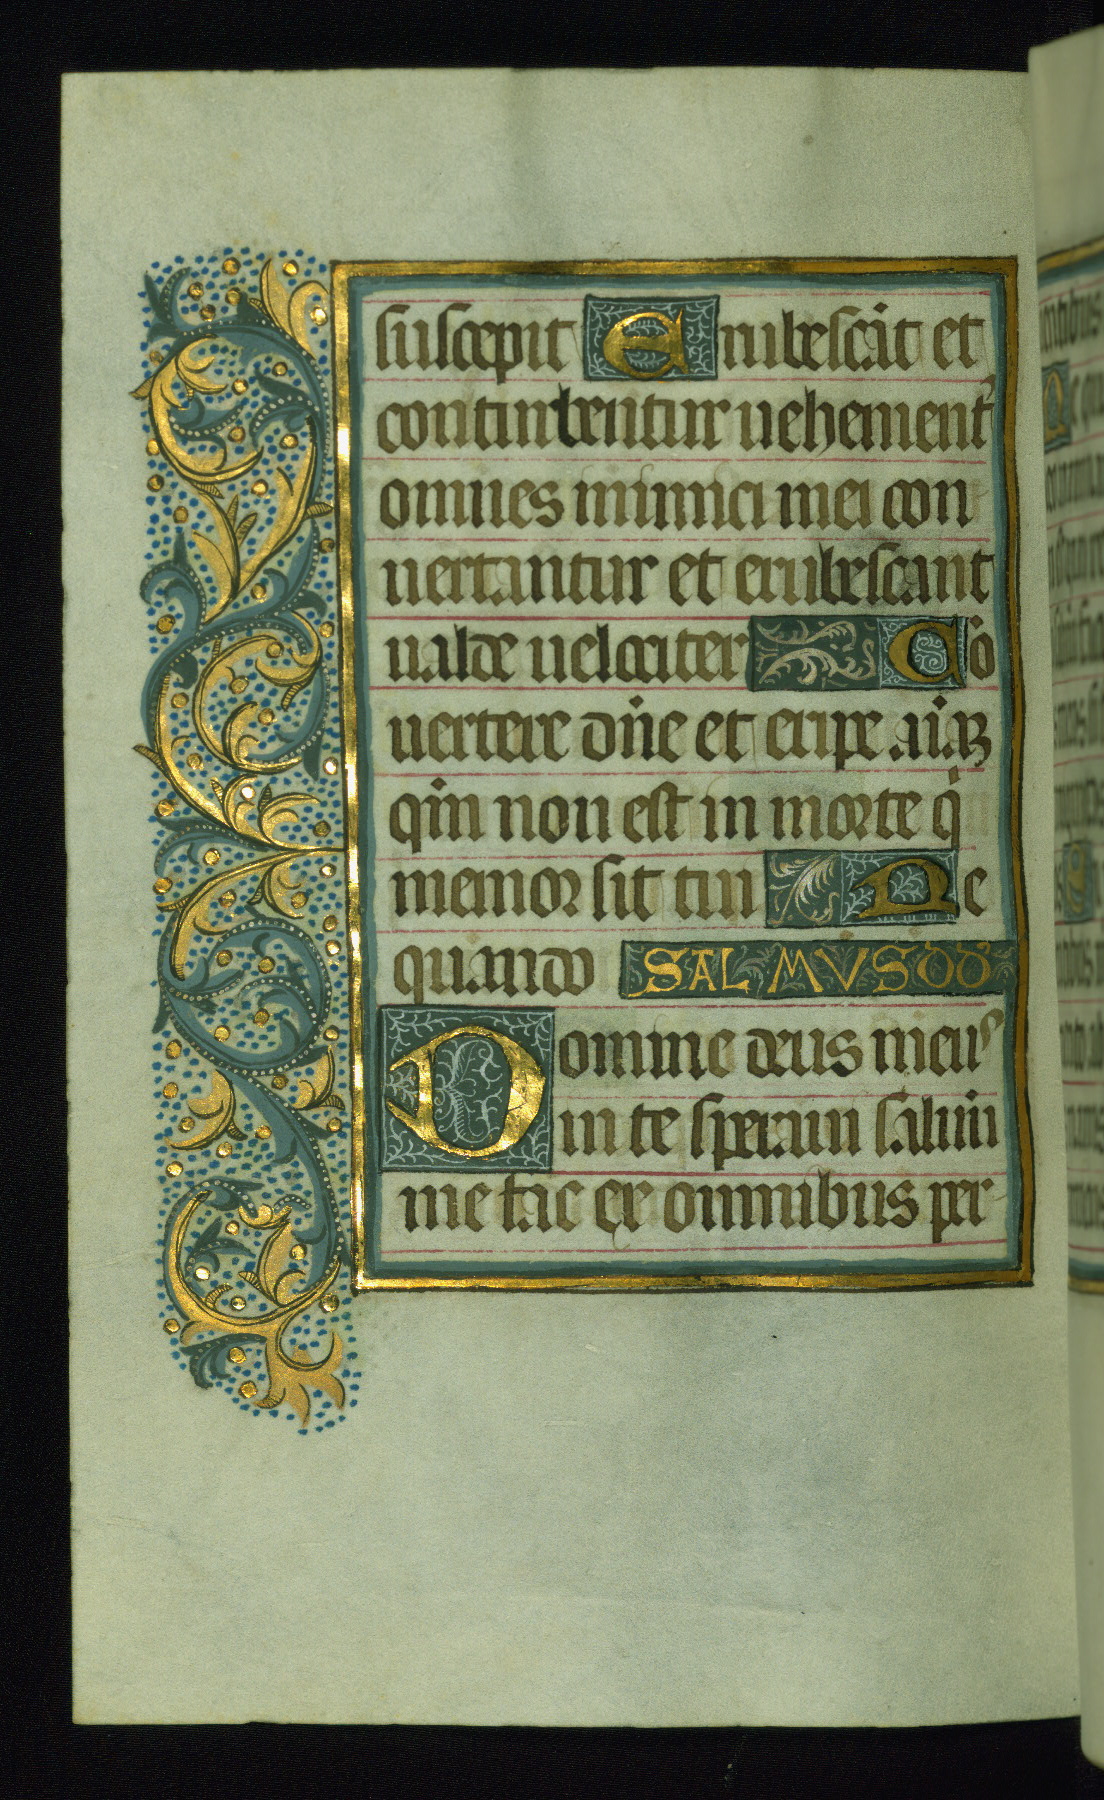 suscepit Erubescāt et
conturbentur uehement᾽
omnes inimici mei con
uertantur et erubescant
ualde uelociter Cō
uertere dn̄e et eripe aīaꝫ
qm̄ non est in morte q̇
memor sit tui Ne
quando SALMVS dd
Domine deus meus
in te speraui saluū
me fac ex omnibus per